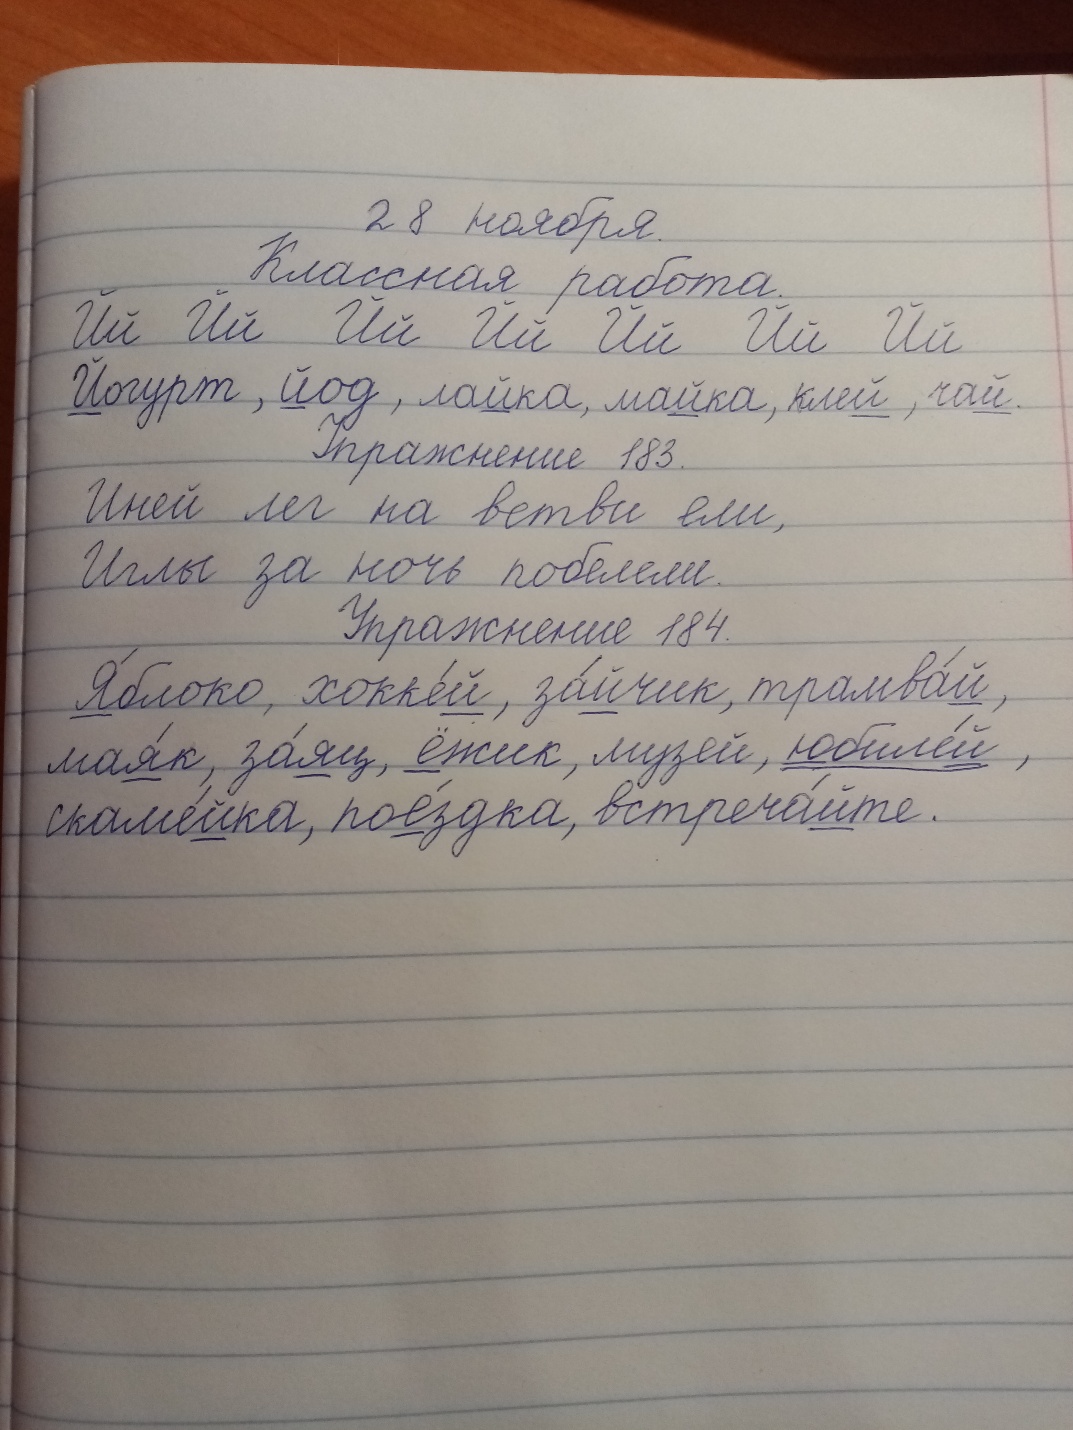 28 ноября.
Классная работа.
Йй Йй Йй Йй Йй Йй Йй
Йогурт, йод, лайка, майка, клей, чай.
Упражнение 183.
Иней лег на ветви ели,
Иглы за ночь побелели.
Упражнение 184.
Я́блоко, хокке́й, за́йчик, трамва́й,
мая́к, за́яц, ёжик, музей, юбиле́й,
скаме́йка, пое́здка, встреча́йте.